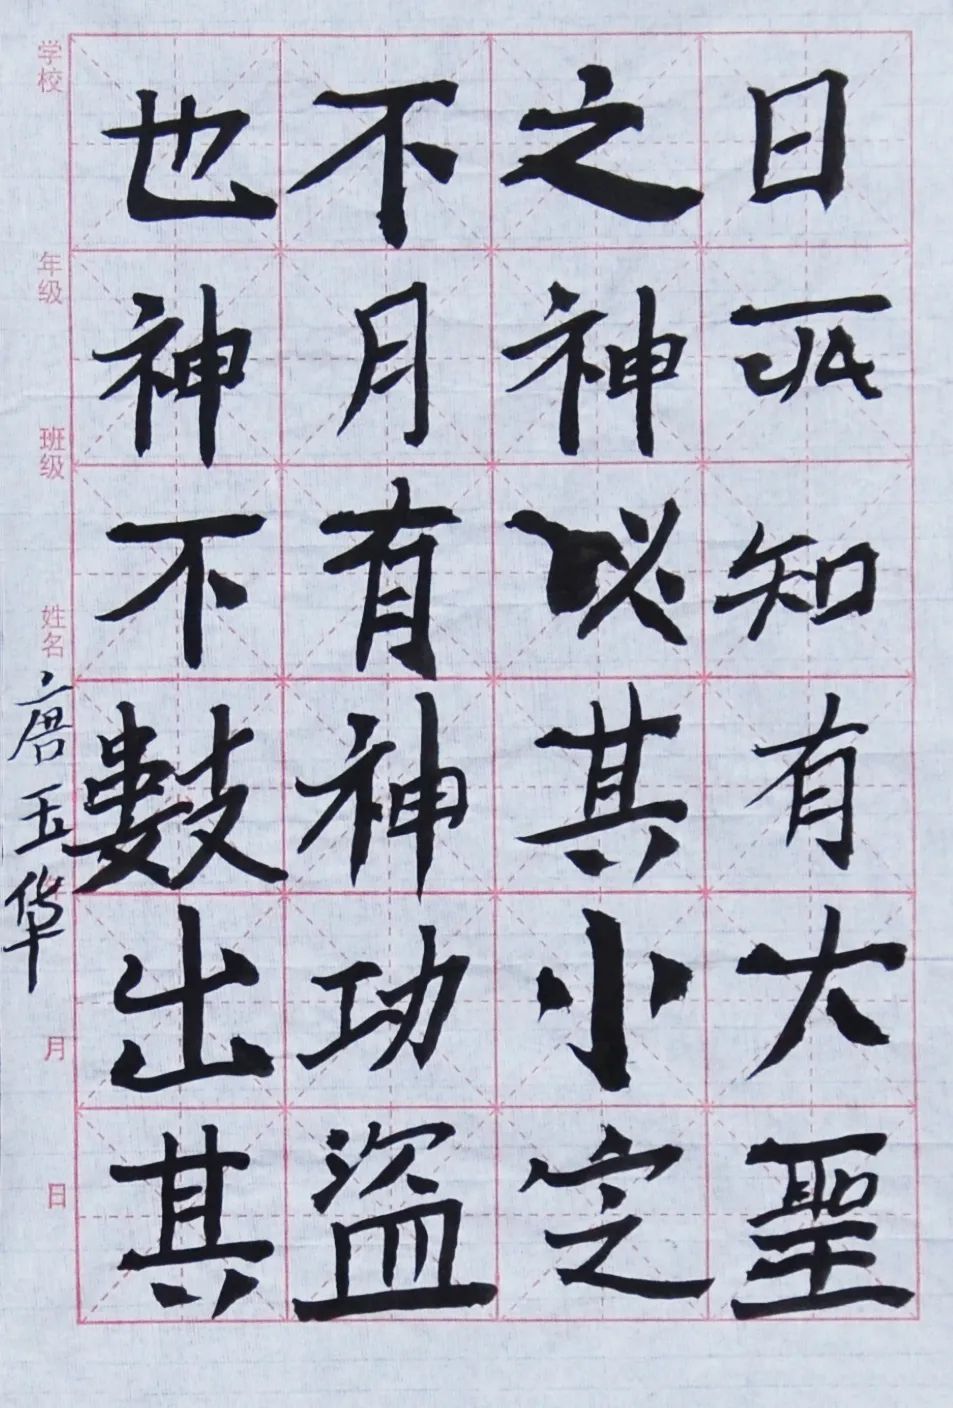 日所知有大聖
之神以其小定
不月有神功盜
也神不數出其
学校
年级
班级
姓名
唐玉华
月
日